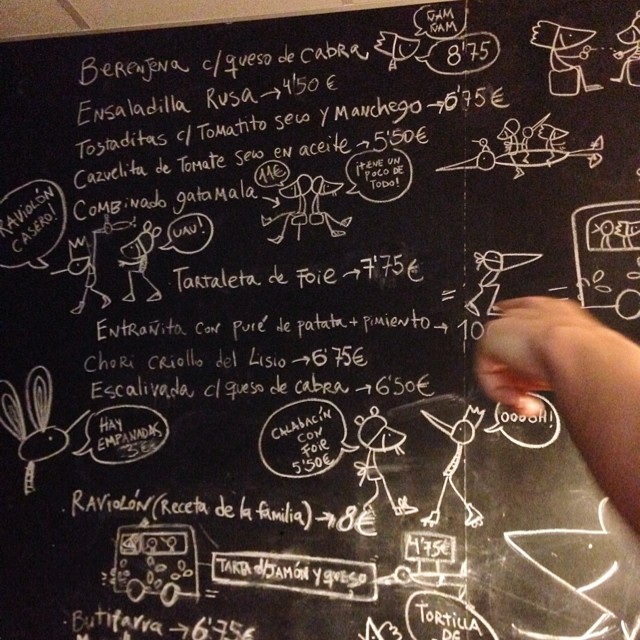 ÑAM ÑAM
Berenjena c/queso de cabra 8'75
Ensaladilla Rusa → 4'50 €
Tostaditas c/Tomatito seco y Manchego → 6'75 €
Cazuelita de Tomate seco en aceite → 5'50€
Combinado gatamala 11€
¡TIENE UN POCO DE TODO!
RAVIOLÓN CASERO!
UAU!
Tartaleta de Foie → 7'75€
Entrañita con puré de patata + pimiento → 10
Chori criollo del Lisio → 6'75€
Escalivada c/queso de cabra → 6'50€
HAY EMPANADAS 3€
CALABACÍN CON FOIE 5'50€
OOOOH!
RAVIOLÓN (Receta de la familia) → 8€
TARTA d/JAMÓN y queso 4'75€
Butifarra → 6'75€
TORTILLA DE